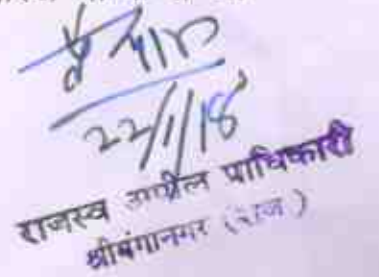 22/1/18
राजस्व अपील प्राधिकारी
श्रीगंगानगर (राज)